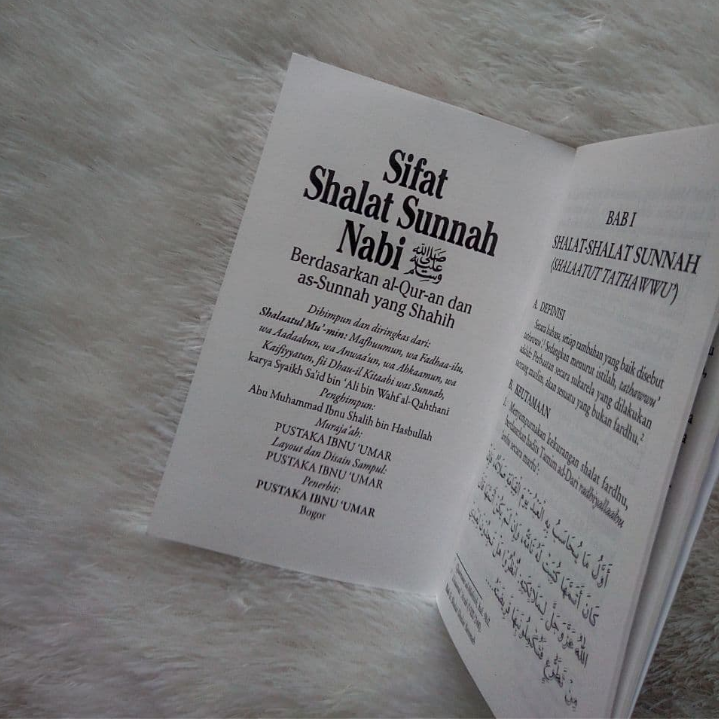 Sifat
Shalat Sunnah
Nabi ﷺ
Berdasarkan al-Qur-an dan
as-Sunnah yang Shahih
Dihimpun dan diringkas dari:
Shalaatul Mu'-min: Mafhuumun, wa Fadhaa-ilu,
wa Aadaabun, wa Anwaa'un, wa Ahkaamun, wa
Kaifiyyatun, fii Dhau-il Kitaabi was Sunnah,
karya Syaikh Sa'id bin 'Ali bin Wahf al-Qahthani
Penghimpun:
Abu Muhammad Ibnu Shalih bin Hasbullah
Muraja'ah:
PUSTAKA IBNU 'UMAR
Layout dan Disain Sampul:
PUSTAKA IBNU 'UMAR
Penerbit:
PUSTAKA IBNU 'UMAR
Bogor
BAB I
SHALAT-SHALAT SUNNAH
(SHALAATUT TATHAWWU')
A. DEFINISI
Secara bahasa, setiap tambahan yang baik disebut
tathawwu'.¹ Sedangkan menurut istilah, tathawwu'
adalah: Perbuatan secara sukarela yang dilakukan
seorang muslim, dan sesuatu yang bukan fardhu.²
B. KEUTAMAAN
1. Menyempurnakan kekurangan shalat fardhu,
berdasarkan hadits Tamim ad-Dari radhiyallaahu
'anhu secara marfu':
أَوَّلُ مَا يُحَاسَبُ بِهِ الْعَبْدُ يَوْمَ الْقِيَامَةِ صَلَاتُهُ
كَانَ أَتَمَّهَا كُتِبَتْ لَهُ تَامَّةً، وَإِنْ لَمْ يَكُنْ أَتَمَّهَا قَالَ
اللهُ عَزَّ وَجَلَّ لِمَلَائِكَتِهِ: انْظُرُوْا هَلْ تَجِدُوْنَ لِعَبْدِيْ
مِنْ تَطَوُّعٍ فَتُكْمِلُوْنَ بِهَا فَرِيْضَتَهُ